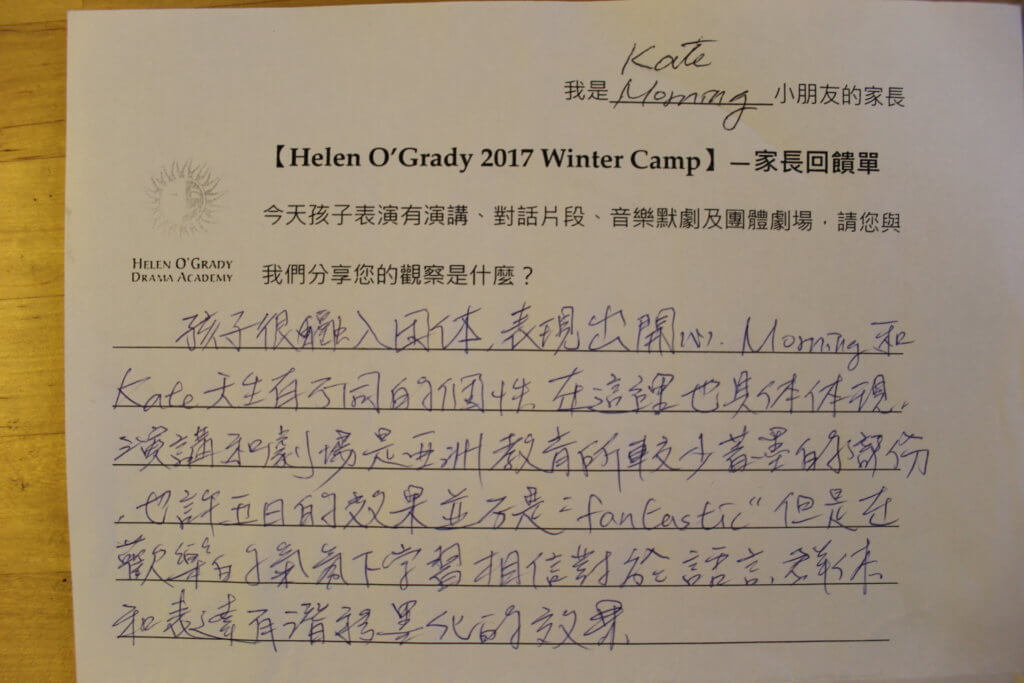 Kate
我是 Morning 小朋友的家長
【Helen O'Grady 2017 Winter Camp】—家長回饋單
今天孩子表演有演講、對話片段、音樂默劇及團體劇場，請您與
HELEN O'GRADY
DRAMA ACADEMY
我們分享您的觀察是什麼？
孩子很融入团体,表現出開心. Morning 和
Kate 天生有不同的個性 在這裡也具体体現,
演講和劇場是亚洲教育所較少著墨的部份
,也許五日的效果並不是"fantastic"但是在
歡樂的氣氛下学習相信對於語言、群体
和表達有潜移墨化的效果